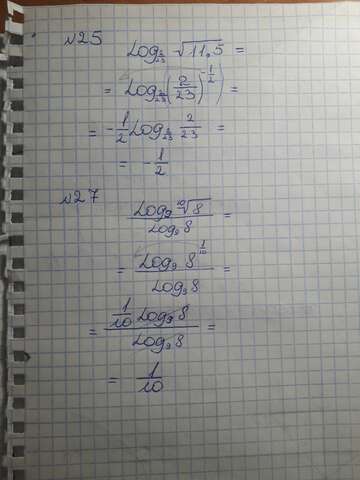 №25
Log_{2/23} √11,5 =
= Log_{2/23} (2/23)^{-1/2}) =
= -1/2 Log_{2/23} 2/23 =
= -1/2
№27
Log₉ ¹⁰√8 / Log₉ 8 =
= Log₉ 8^{1/10} / Log₉ 8 =
= 1/10 Log₉ 8 / Log₉ 8 =
= 1/10